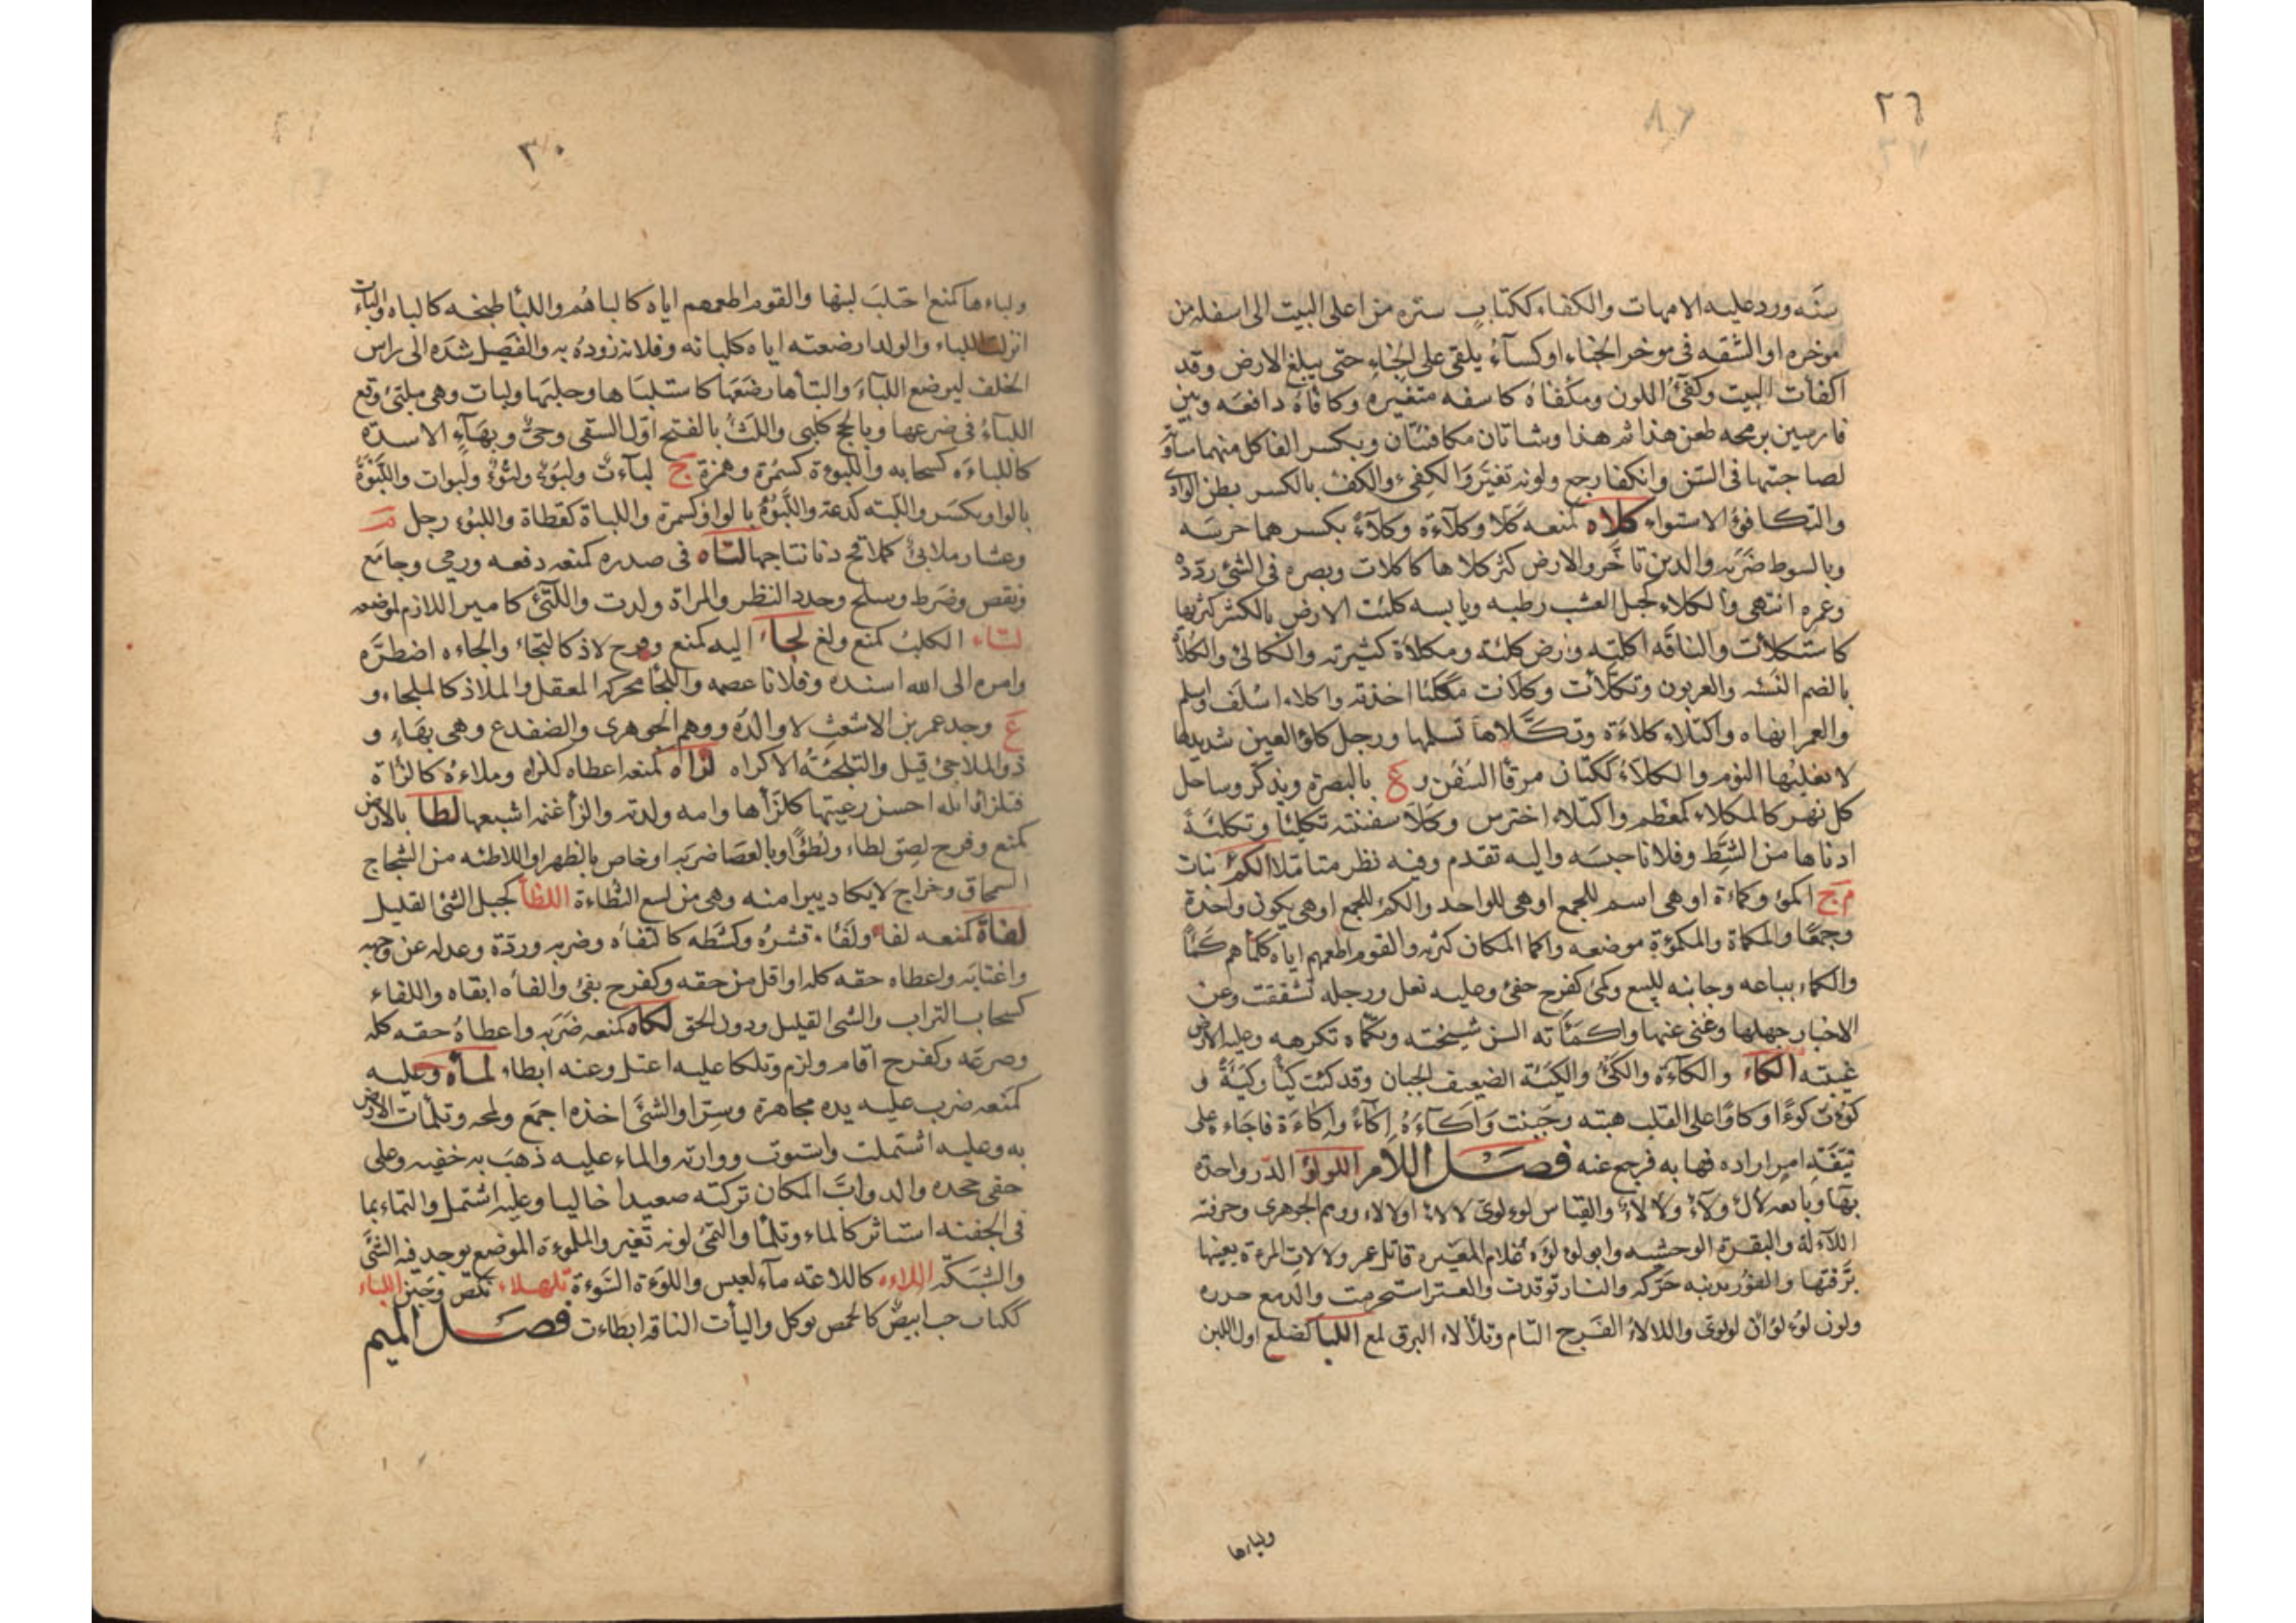 ٢٦
٨٢
٣٧
سنَه ورد عليه الامهات والكفاء ككتاب ستره من اعلى البيت الى اسفله من
موخره او الشقه فى موخر الخباء او كسآء يلقى على الخباء حتى يبلغ الارض وقد
اكفأت البيت وكفئ اللون ومكفاه كاسفه متغيره وكافاه دافعه وبين
فارسين برمحه طعن هذا ثم هذا وشاتان مكافئتان وبكسر الفا كل منهما مساوية
لصاحبتها فى السّن وانكفا رجع ولونه تغيّر والكفىء والكفء بالكسر بطن الوادى
والتكافؤ الاستواء كلاه كمنعه كلا وكلآءة وكلآءً بكسرهما حرسَه
وبالسوط ضرَبه والدين تاخّر والارض كثر كلاها كاكلات وبصره فى الشئ ردّدهُ
وعمره انتهى والكلاء كجبل العشب رطبه ويابسه كلئت الارض بالكسر كثر بها
كاستكلأت والناقة اكلته وارض كلئه ومكلاة كثيرته والكالئ والكلأة
بالضم النَسْئه والعربون وتكلأت وكلأت تكليئا اخذته واكلاء اسلف واسلم
والعمر انهاه واكتلاء كلاءة وتكلاها تسلمها ورجل كلؤ العين شديدها
لا يغلبها النوم والكلاء ككتان مرفأ السفن و ع بالبصرة ويذكر وساحل
كل نهر كالمكلاء كمعظم واكتلاء احترس وكلأ سفينته تكليئا وتكلئة
ادناها من الشط وفلانا حبسَه واليه تقدم وفيه نظر متاملا الكمء نبات
م ج اكمؤ وكماءة او هى اسم للجمع او هى للواحد والكمء للجمع او هى يكون واحدة
وجمعًا والمكماة والمكمؤة موضعه واكما المكان كثر به والقوم اطعمهم اياه ككمأهم كمئاً
والكماء بياعه وجانيه للبيع وكمئ كفرح حفئ وعليه نعل ورجله تشققت وعن
الاخبار جهلها وغبى عنها واكمأته السن شيخته وتكماه تكرهه وعليه الارض
غيبته الكاء والكاءة والكئ والكيئة الضعيف الجبان وقد كئت كيئا وكيئة و
كؤت كوءًا وكاوًا على القلب هبته وجبنت واكآءه اكآءً واكاءة فاجاءه على
تئفة امر اراده فهابه فرجع عنه فصـل اللام اللولؤ الدر واحدته
بهاء وبايعه لأل ولآء ولألاء والقياس لوءلوئ لالاء اولالاء ووهم الجوهرى وحرفته
اللآلة والبقرة الوحشيه وابو لولوءه غلام المغيره قاتل عمر ولالات المرءة بعينها
برّقتها والفور بذنبه حرّكه والنار توقدت والعنز استحرمت والدمع حدره
ولون لوءلؤان لولوى واللالاء الفرح التام وتلألاء البرق لمع اللبأ كضلع اول اللبن
ولباءها
٣٠
ولباءها كمنع احتلب لبنها والقوم اطعمهم اياه كالباهُم واللبأ طبخه كالباه والبأت
انزلت اللباء والولد ارضعته اياه كلبأته وفلانا زوده به والفصيل شدّه الى راس
الخلف ليرضع اللبآء والتبأها رضعها كاستلبأها وحلبها ولبات وهى ملبئ وقع
اللبآء فى ضرعها وبالحج كلبى واللبء بالفتح اول السقى وحىّ وبهاءٍ الاسده
كاللباءَه كسحابه واللبوءة كسمرة وهمزة ج لبآءت ولبوء ولبوءٌ ولبوات واللبوة
بالواو ويكسر واللبه كدعة واللبوه بالواو كسمرة واللباة كقطاة واللبوء رجل م
وعشار ملابئ كملاقح دنا نتاجها لتاه فى صدره كمنعه دفعه ورمى وجامع
ونقص وضرط وسلح وحدد النظر والمراة ولدت واللتئ كامير اللازم لموضعه
لثاء الكلب كمنع ولغ لجاء اليه كمنع وفرح لاذ كالتجاء والجاءه اضطرّه
وامره الى الله اسنده وفلانا عصمه واللجأ محركه المعقل والملاذ كالملجاء و
ع وجد عمر بن الاشعث لا والده ووهم الجوهرى والضفدع وهى بهاءٍ و
ذو الملاجئ قيل والتلجئة الاكراه لزاه كمنعه اعطاه كلزاه وملاءه كالزاه
فتلزا وابله احسن رعيتها كلزأها وامه ولدته والزأ غنمه اشبعها لطا بالارض
كمنع وفرح لصق لطاء ولطؤًا وبالعصا ضربه او خاص بالظهر واللاطئه من الشجاج
السمحاق وخراج لا يكاد يبرا منه وهى من لسع الثطاءة اللظأ كجبل الشئ القليل
لفاة كمنعه لفاء ولفَاء قشره وكشَطه كالتفاه وضربه وردّه وعدله عن وجهه
واغتابه واعطاه حقه كله او اقل من حقه وكفرح بقئ والفأه ابقاه واللفاء
كسحاب التراب والشى القليل ودون الحق لكاه كمنعه ضرَبه واعطاهُ حقه كله
وصرعَه وكفرح اقام ولزم وتلكا عليه اعتل وعنه ابطاء لمأه وعليه
كمنعه ضرب عليه يده مجاهرة وسترا والشئ اخذه اجمع ولمحه وتلمأت الارض
به وعليه اشتملت واستوت ووارته والماء عليه ذهب به خفيه وعلى
حقى جحده والدواب المكان تركته صعيدا خاليا وعليه اشتمل والتماء بما
فى الجفنه استاثر كالماء وتلمأ والتمئ لونه تغير والملموءة الموضع يوجد فيه الشئ
والشبكه اللاءه كاللاعه مآء لعبس واللوءة السوءة تلهلاء نكص وجبن اللياء
ككتاب حب ابيض كالحمص يوكل واليأت الناقه ابطاءت فصـل الميم